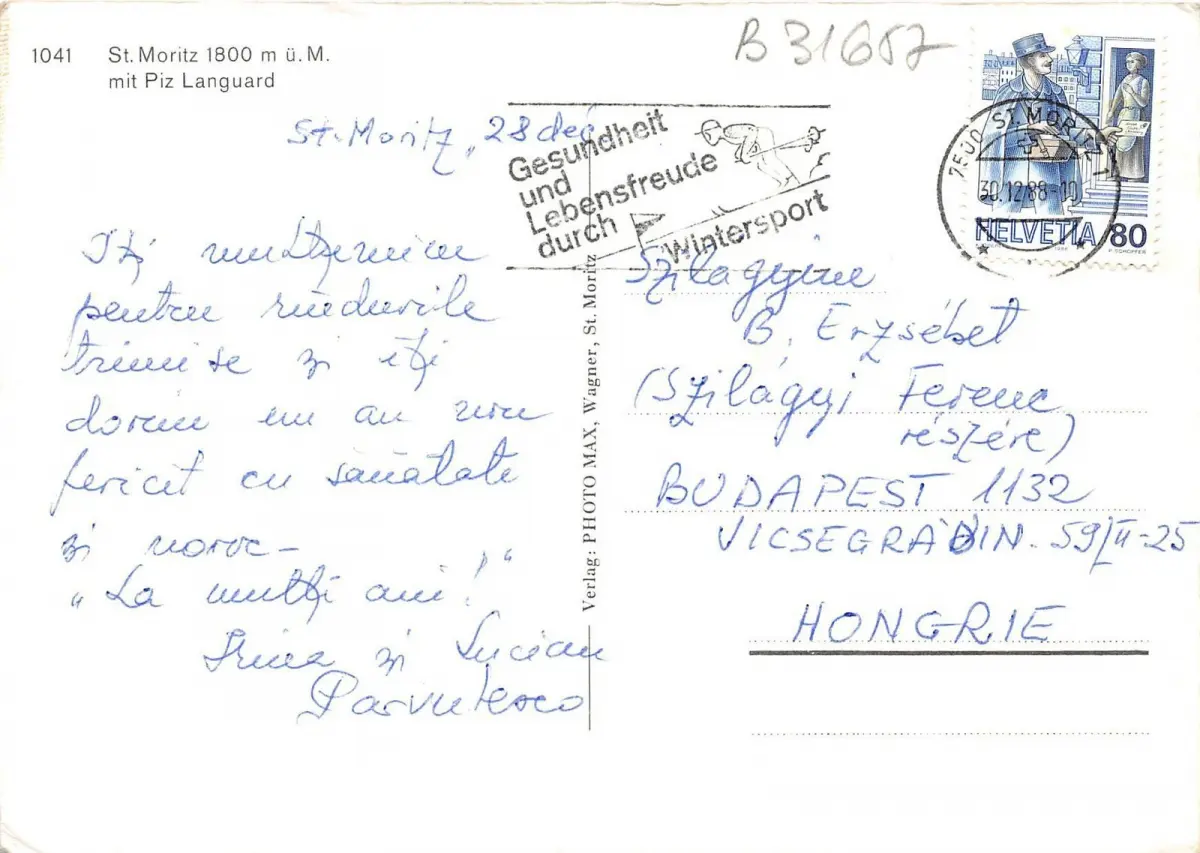 1041 St. Moritz 1800 m ü. M.
mit Piz Languard
B 31657
St. Moritz, 28 dec
Gesundheit
und
Lebensfreude
durch
Wintersport
7500 ST. MORITZ 1
30.12.88-10
HELVETIA 80
Îți mulțumim
pentru rîndurile
trimise și îți
dorim un an nou
fericit cu sănătate
și noroc –
„La mulți ani!"
Irina și Lucian
Parvulesco
Verlag: PHOTO MAX, Wagner, St. Moritz
Szilágyiné
B. Erzsébet
(Szilágyi Ferenc
részére)
BUDAPEST 1132
VICSEGRÁDIN. 59/II-25
HONGRIE